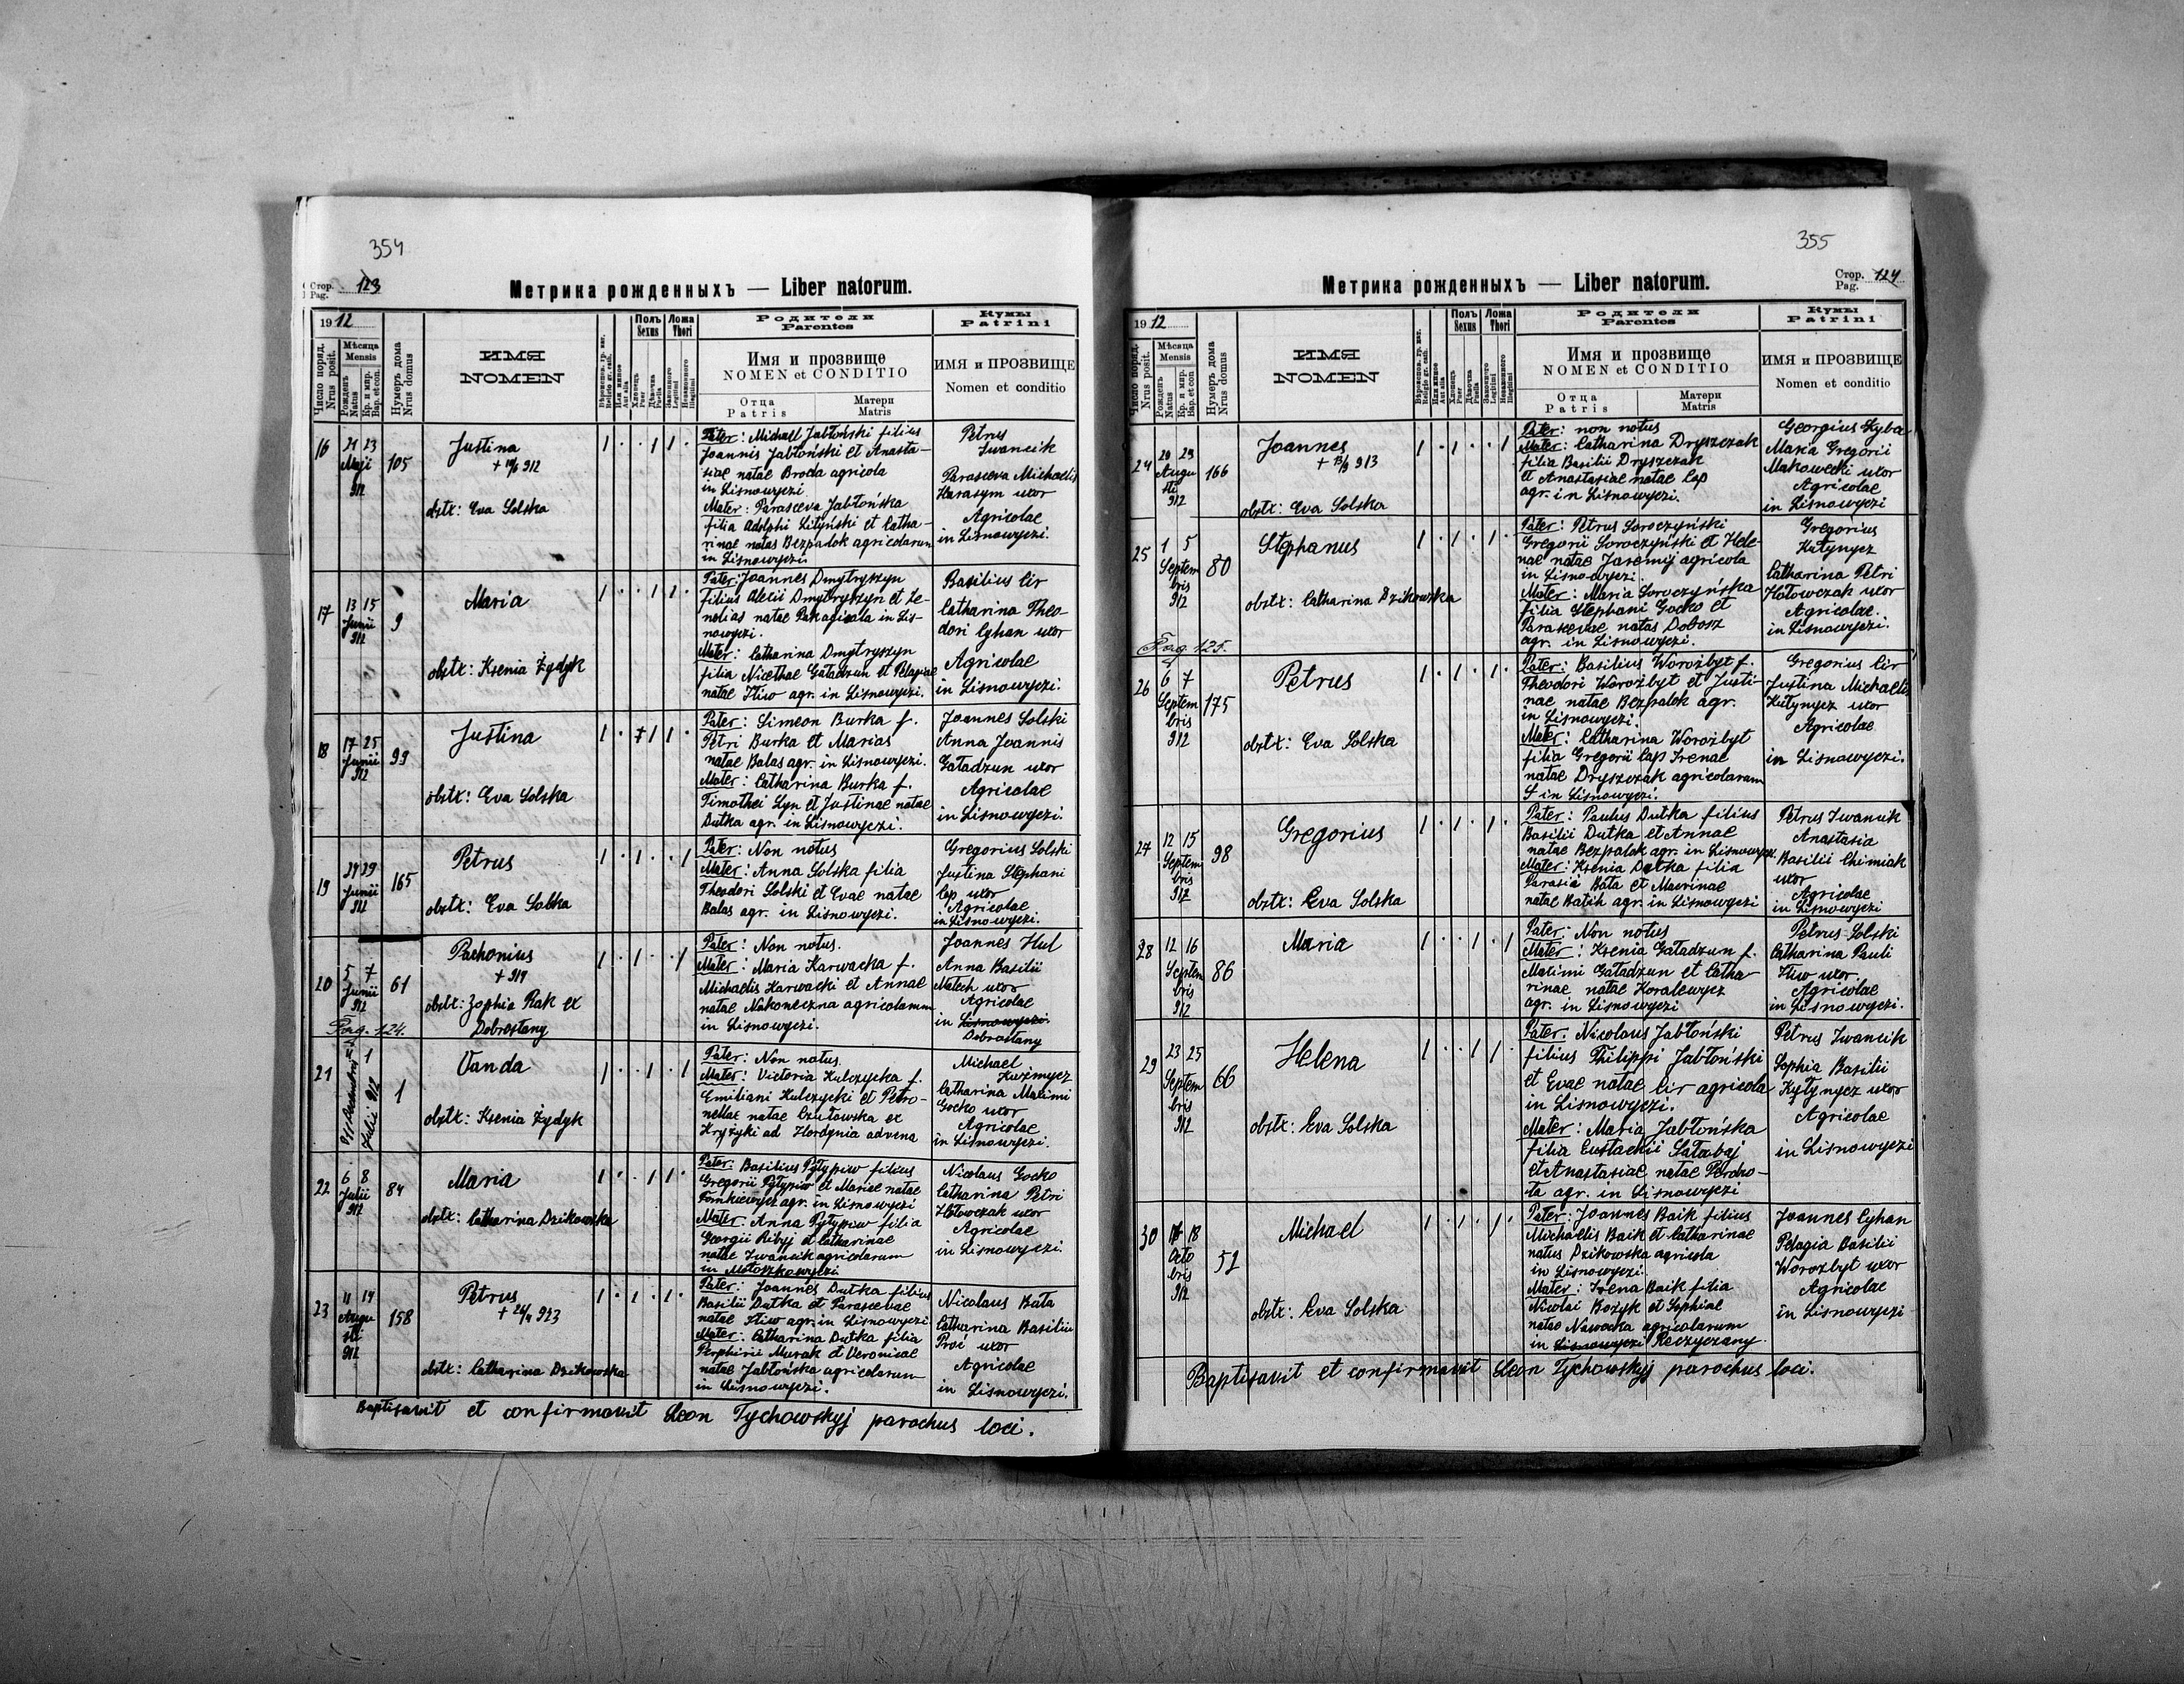 354
Стор. Pag. 123
Метрика рожденныхъ — Liber natorum.
1912
Число поряд. Nrus posit.
Мѣсяца Mensis
Рожденъ Natus
Кр. и мир. Bap. et con.
Нумеръ дома Nrus domus
ИМЯ
NOMEN
Полъ Sexus
Ложа Thori
Родители
Parentes
Имя и прозвище
NOMEN et CONDITIO
Отца Patris
Матери Matris
Кумы
Patrini
ИМЯ и ПРОЗВИЩЕ
Nomen et conditio
16
21 23
Maji
912
105
Justina
obstx: Eva Solska
Pater: Michael Jabłoński filius
Joannis Jabłoński et Anasta-
siae natae Broda agricola
in Lisnowyczi
Mater: Parasceva Jabłońska
filia Adolphi Lityński et Catha-
rinae natae Bezpalok agricolarum
in Lisnowyczi
Petrus
Iwancik
Parasceva Michaelis
Harasym uxor
Agricolae
in Lisnowyczi.
17
13 15
Junii
912
9
Maria
obstx: Ksenia Żydyk
Pater: Joannes Dmytryszyn
filius Alexii Dmytryszyn et Ze-
nobias natae Pak agricola in Lis-
nowyczi.
Mater: Catharina Dmytryszyn
filia Nicethae Gaładzun et Pelagiae
natae Iliw agr. in Lisnowyczi.
Basilius Cir
Catharina Theo-
dori Cyhan uxor
Agricolae
in Lisnowyczi.
18
17 25
Junii
912
99
Justina
obstx: Eva Solska
Pater: Simeon Burka f.
Petri Burka et Marias
natae Balas agr. in Lisnowyczi.
Mater: Catharina Burka f.
Timothei Lyn et Justinae natae
Dutka agr. in Lisnowyczi.
Joannes Solski
Anna Joannis
Gaładzun uxor
Agricolae
in Lisnowyczi.
19
24 29
Junii
912
165
Petrus
obstx: Eva Solska
Pater: Non notus
Mater: Anna Solska filia
Theodori Solski et Evae natae
Balas agr. in Lisnowyczi.
Gregorius Solski
Justina Stephani
Cap uxor
Agricolae
in Lisnowyczi.
20
5 7
Junii
912
61
Pachonius
+ 919
obstx: Zophia Rak ex
Dobrostany
Pater: Non notus.
Mater: Maria Karwacka f.
Michaelis Karwacki et Annae
natae Nakoneczna agricolarum
in Lisnowyczi.
Joannes Hul
Anna Basilii
Matech uxor
Agricolae
in Lisnowyczi
Dobrostany
Pag. 124.
21
1
Julii 912
1
Vanda
obstx: Ksenia Żydyk
Pater: Non notus.
Mater: Victoria Kulczycka f.
Emiliani Kulczycki et Petro-
nellae natae Czutowska ex
Kryżyki ad Hordynia advena
Michael
Kuźmycz
Catharina Maximi
Gocko uxor
Agricolae
in Lisnowyczi.
22
6 8
Julii
912
84
Maria
obstx: Catharina Dzikowska
Pater: Basilius Pyłypiw filius
Gregorii Pyłypiw et Mariae natae
Fomkiewycz agr. in Lisnowyczi
Mater: Anna Pyłypiw filia
Georgii Ribyj et Catharinae
natae Iwancik agricolarum
in Mołoszkowyczi
Nicolaus Gocko
Catharina Petri
Hołowczak uxor
Agricolae
in Lisnowyczi.
23
11 14
Augu
sti
912
158
Petrus
+ 26/4 923
obstx: Catharina Dzikowska
Pater: Joannes Dutka filius
Basilii Dutka et Parascevae
natae Iliw agr. in Lisnowyczi
Mater: Catharina Dutka filia
Porphirii Musak et Veronicae
natae Jabłońska agricolarum
in Lisnowyczi.
Nicolaus Bata
Catharina Basilii
Proć uxor
Agricolae
in Lisnowyczi.
Baptisavit et confirmavit Leon Tychowskyj parochus loci.
355
Стор. Pag. 124
Метрика рожденныхъ — Liber natorum.
1912
Число поряд. Nrus posit.
Мѣсяца Mensis
Рожденъ Natus
Кр. и мир. Bap. et con.
Нумеръ дома Nrus domus
ИМЯ
NOMEN
Полъ Sexus
Ложа Thori
Родители
Parentes
Имя и прозвище
NOMEN et CONDITIO
Отца Patris
Матери Matris
Кумы
Patrini
ИМЯ и ПРОЗВИЩЕ
Nomen et conditio
24
20 29
Augu
sti
912
166
Joannes
+ 13/9 913
obstx: Eva Solska
Pater: non notus
Mater: Catharina Dryszczak
filia Basilii Dryszczak
et Anastasiae natae Cap
agr. in Lisnowyczi.
Georgius Hyba
Maxa Gregorii
Makowecki uxor
Agricolae
in Lisnowyczi
25
1 5
Septem
bris
912
80
Stephanus
obstx: Catharina Dzikowska
Pater: Petrus Soroczyński
Gregorii Soroczyński et Hele-
nae natae Jaremij agricola
in Lisnowyczi.
Mater: Maria Soroczyńska
filia Stephani Gocko et
Parascevae natas Dobosz
agr. in Lisnowyczi.
Gregorius
Kutynycz
Catharina Petri
Hołowczak uxor
Agricolae.
in Lisnowyczi.
Pag. 125.
26
6 7
Septem
bris
912
175
Petrus
obstx: Eva Solska
Pater: Basilius Worożbyt f.
Theodori Worożbyt et Justi-
nae natae Bezpalok agr.
in Lisnowyczi.
Mater: Catharina Worożbyt
filia Gregorii Cap Irenae
natae Dryszczak agricolarum
in Lisnowyczi.
Gregorius Cir
Justina Michaelis
Kutynycz uxor
Agricolae
in Lisnowyczi.
27
12 15
Septem
bris
912
98
Gregorius
obstx: Eva Solska
Pater: Paulus Dutka filius
Basilii Dutka et Annae
natae Bezpalok agr. in Lisnowyczi.
Mater: Ksenia Dutka filia
Parasia Bata et Macrinae
natae Batih agr. in Lisnowyczi
Petrus Iwancik
Anastasia
Basilii Chimiak
uxor
Agricolae
in Lisnowyczi
28
12 16
Septem
bris
912
86
Maria
Pater: Non notus
Mater: Ksenia Gaładzun f.
Maximi Gaładzun et Catha
rinae natae Koralewycz
agr. in Lisnowyczi
Petrus Solski
Catharina Pauli
Iliw uxor.
Agricolae
in Lisnowyczi.
29
23 25
Septem
bris
912
66
Helena
obstx: Eva Solska
Pater: Nicolaus Jabłoński
filius Philippi Jabłoński
et Evae natae Cir agricola
in Lisnowyczi.
Mater: Maria Jabłońska
filia Eustachii Sałabaj
et Anastasiae natae Percho-
ta agr. in Lisnowyczi
Petrus Iwancik
Sophia Basilii
Kytynycz uxor
Agricolae
in Lisnowyczi
30
18
Octo
bris
912
52
Michael
obstx: Eva Solska
Pater: Joannes Baik filius
Michaelis Baik et Catharinae
natus Dzikowska agricola
in Lisnowyczi.
Mater: Irena Baik filia
Nicolai Bożyk et Sophiae
natae Nawocka agricolarum
in Lisnowyczi Reczyczany.
Joannes Cyhan
Pelagia Basilii
Worożbyt uxor
Agricolae
in Lisnowyczi
Baptisavit et confirmavit Leon Tychowskyj parochus loci.